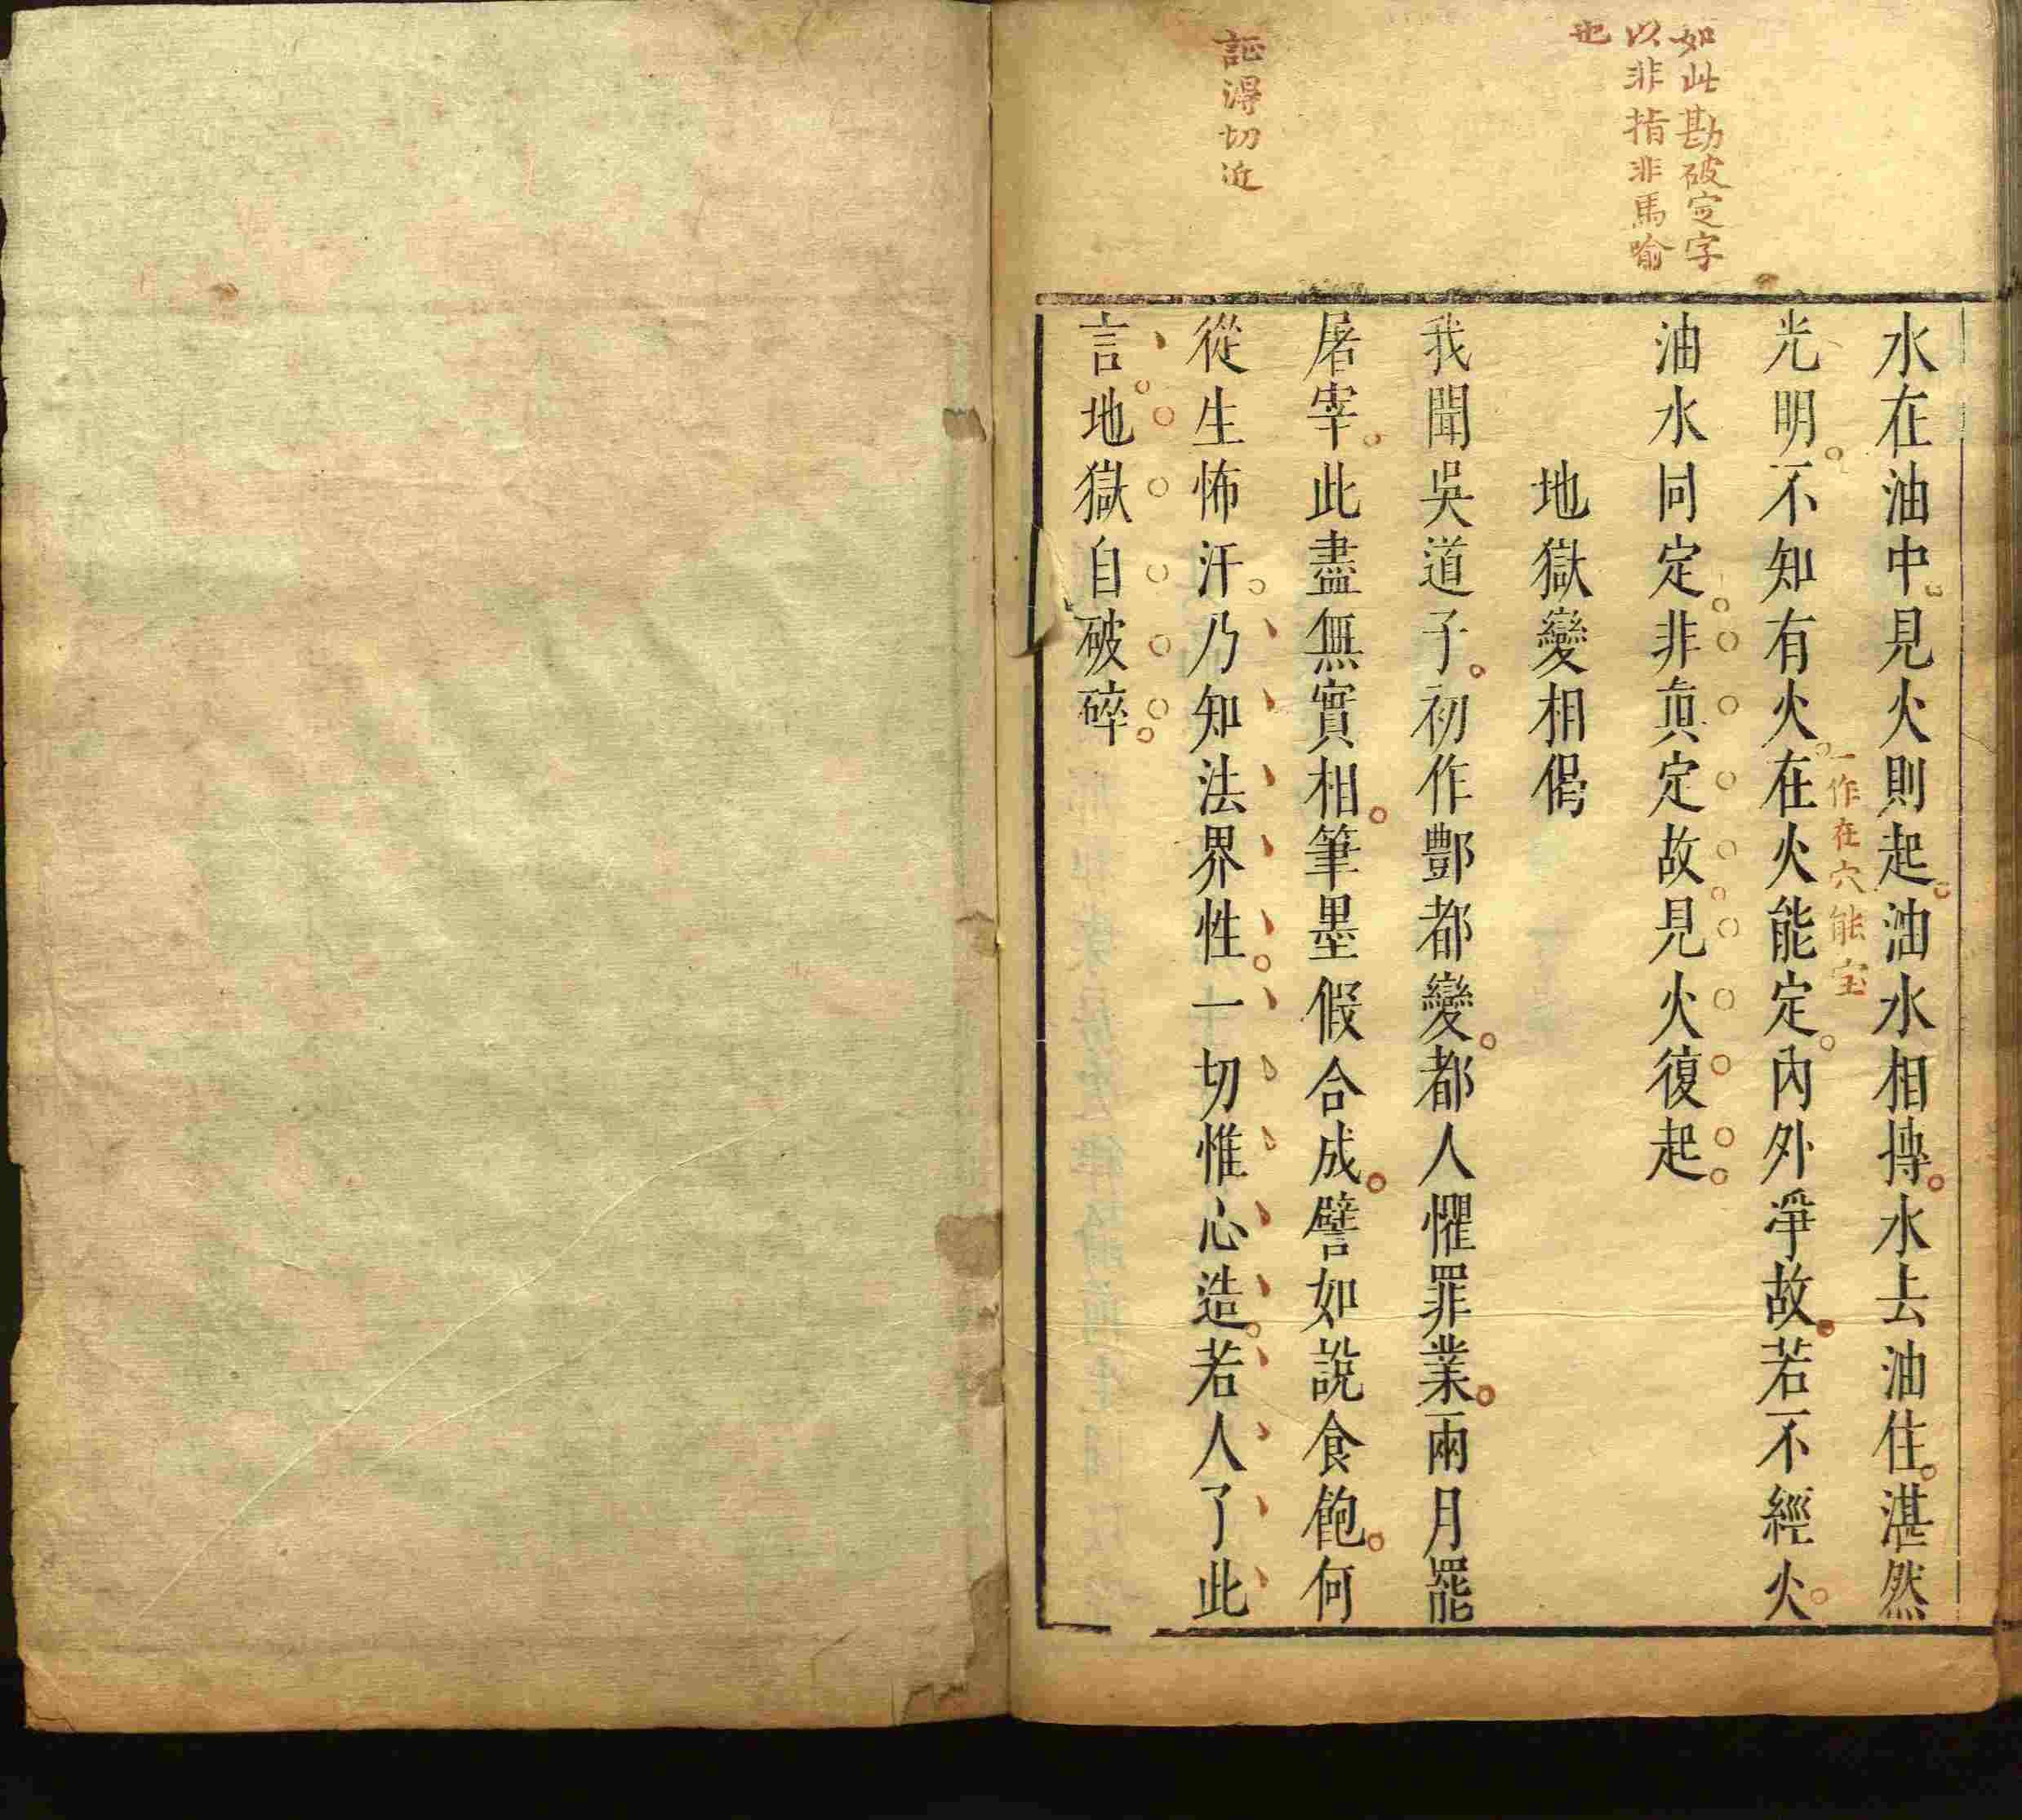 如此勘破定字
以非指非馬喻
也
證得切近
水在油中見火則起油水相摶水去油住湛然
光明不知有火在火能定內外淨故若不經火
一作在穴能定
油水同定非真定故見火復起
地獄變相偈
我聞吳道子初作酆都變都人懼罪業兩月罷
屠宰此盡無實相筆墨假合成譬如說食飽何
從生怖汗乃知法界性一切惟心造若人了此
言地獄自破碎